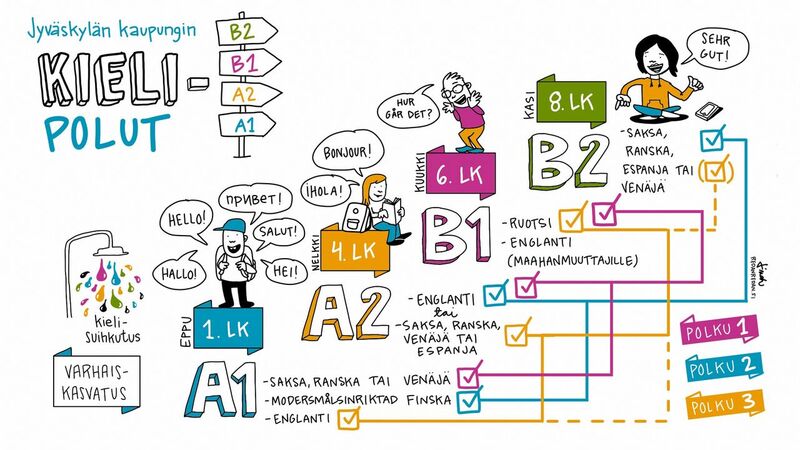 Jyväskylän kaupungin
KIELI-
POLUT
B2
B1
A2
A1
Kieli-
suihkutus
VARHAIS-
KASVATUS
HELLO!
ПРИВЕТ!
SALUT!
HALLO!
HEI!
EPPU
1. LK
A1
-SAKSA, RANSKA TAI VENÄJÄ
-MODERSMÅLSINRIKTAD FINSKA
-ENGLANTI
BONJOUR!
¡HOLA!
NELKKI
4. LK
A2
-ENGLANTI
tai
-SAKSA, RANSKA,
VENÄJÄ TAI
ESPANJA
HUR
GÅR DET?
KUUKKI
6. LK
B1
-RUOTSI
-ENGLANTI
(MAAHANMUUTTAJILLE)
SEHR
GUT!
KASI
8. LK
B2
-SAKSA,
RANSKA,
ESPANJA TAI
VENÄJÄ
POLKU 1
POLKU 2
POLKU 3